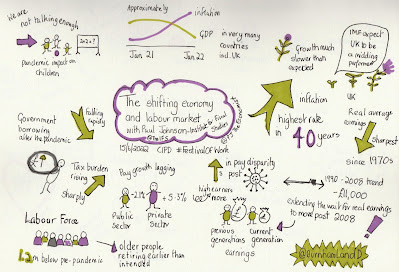 We are
not talking enough
2020?
pandemic impact on
children
Approximately
inflation
GDP
Jan 21
Jan 22
in very many
countries
incl. UK
Growth much
slower than
expected
IMF expect
UK to be
a middling
performer
UK
The shifting economy
and labour market
with Paul Johnson - Institute for Fiscal
Studies
@TheIFS
15/6/2022 CIPD #FestivalOfWork
Government
borrowing
after the pandemic
Falling
rapidly
inflation
highest rate
in
40 years
Real average
earnings
sharpest
since 1970s
Tax burden
rising
sharply
Pay growth lagging
-2%
+5.3%
Public
Sector
private
Sector
in pay disparity
post
high earners
see more
1990 - 2008 trend
- £11,000
extending the wait for real earnings
to move post 2008
previous
generations
current
generation
earnings
Labour Force
m below pre-pandemic
older people
retiring earlier than
intended